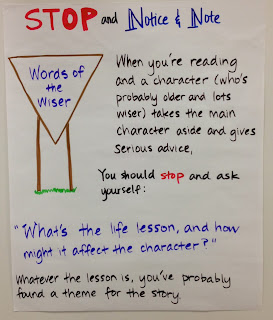 STOP and Notice & Note
Words of
the
Wiser
When you're reading
and a character (who's
probably older and lots
wiser) takes the main
character aside and gives
serious advice,
You should stop and ask
yourself:
"What's the life lesson, and how
might it affect the character?"
Whatever the lesson is, you've probably
found a theme for the story.